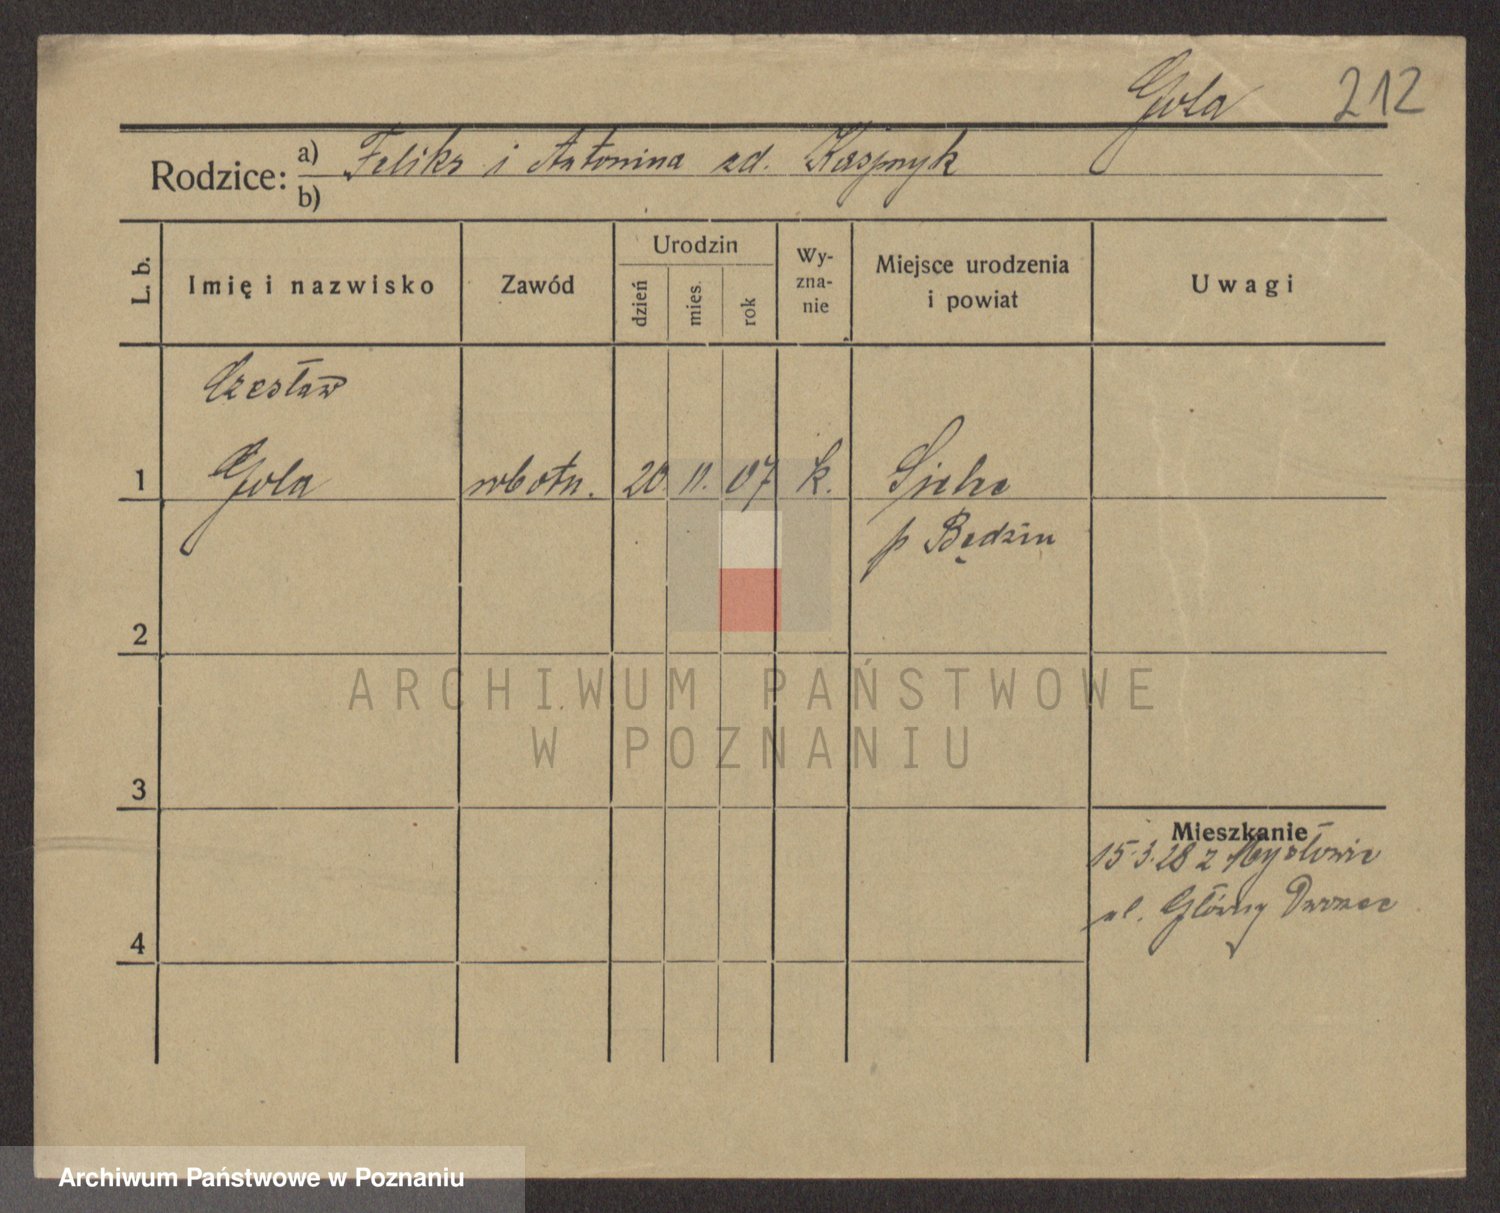 Gola 212
Rodzice: a) Feliks i Antonina zd. Kasprzyk
b)
L. b. Imię i nazwisko Zawód Urodzin dzień mies. rok Wy-zna-nie Miejsce urodzenia i powiat Uwagi
Czesław
1 Gola robotn. 20 11. 07 k. Sielce
p Będzin
2
ARCHIWUM PAŃSTWOWE
W POZNANIU
3
Mieszkanie
15.3.28 z Mysłowic
ul. Główny Dworzec
4
Archiwum Państwowe w Poznaniu